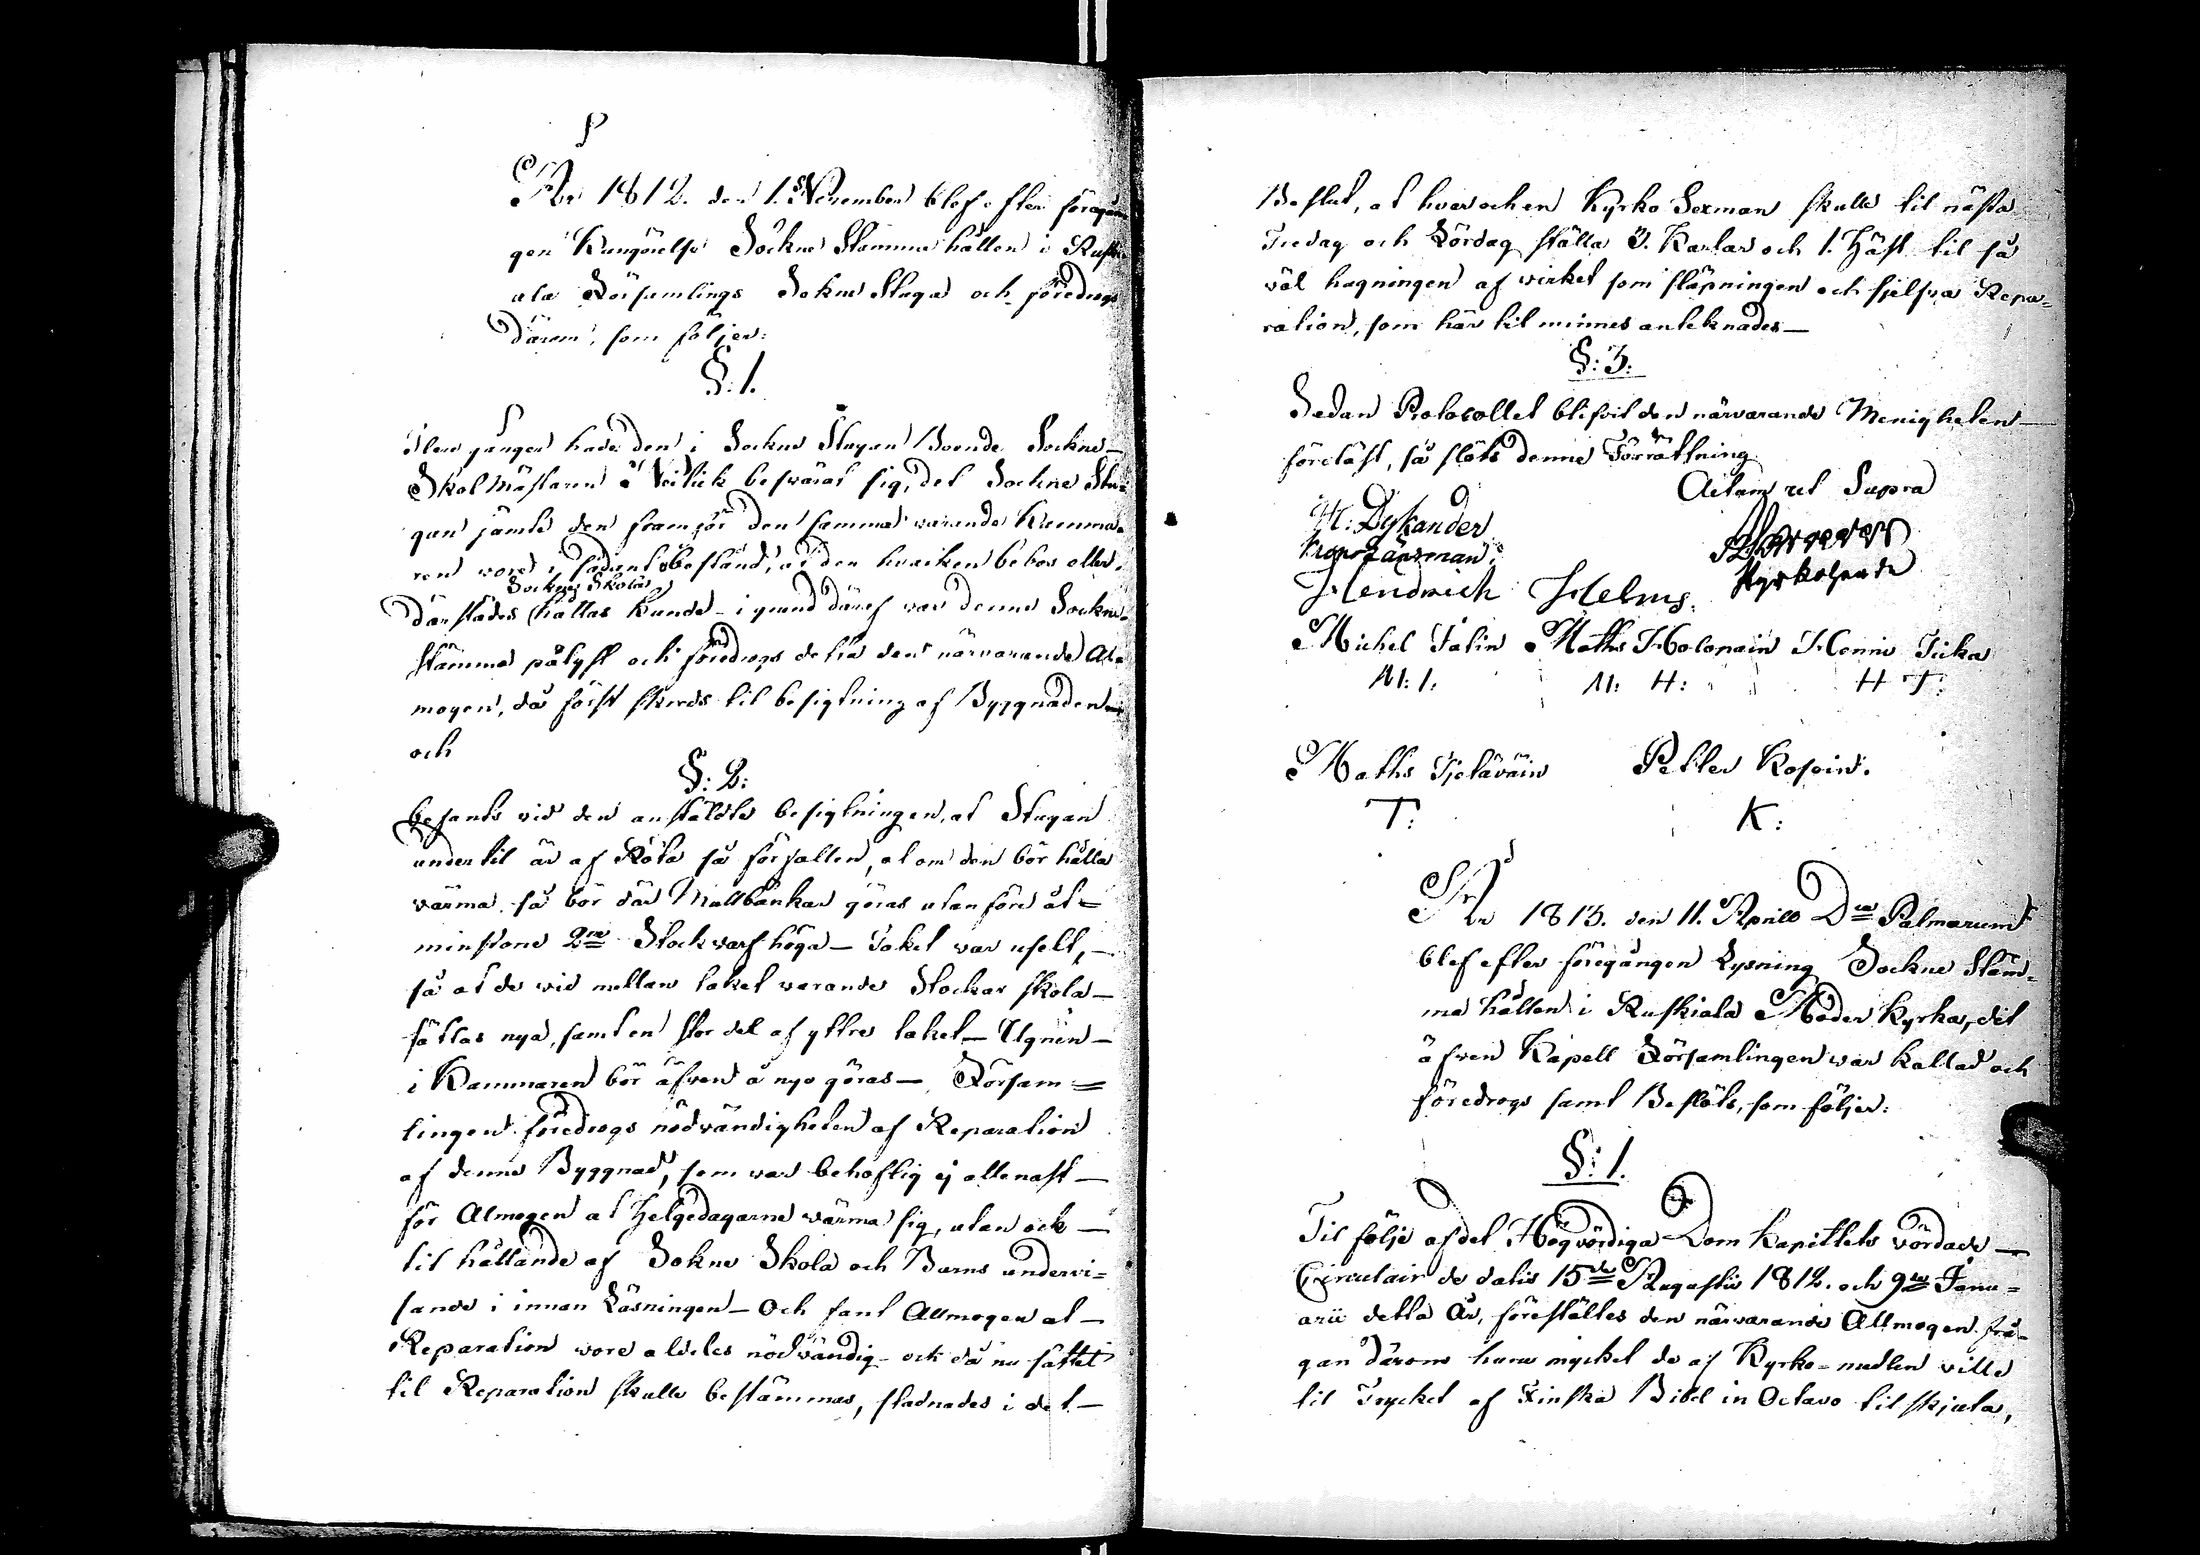 År 1812. den 1. November blef efter föregån
gen Kungörelse Sockne Stämma hållen i Ruski
ala Församlings Sokne Stuga och föredrogs
därom, som följer:
§: 1.
flere gånger hade den i Sockne Stugan Boende Sockne
Skol Mästaren besvärat sig, det Sockne Stu
gan jämte den framför den samma varande Kamma
ren vore i sådant obestånd, at den hvarken bebos eller
Sockne Skolan
därstädes hållas kunde - i grund däraf var denne Sockne
stämma pålyst och föredrogs detta den närvarande Al
mogen, då först skreds til besigtning af Byggnaden
och
§: 2:
befants vid den anstäldte besigtningen, at Stugan
undertil är af Röta så förfallen, at om den bör hålla
värma, så bör där Mullbänkar göras utanföre åt=
minstone 2ne Stockvarf höga - Taket var uselt, -
så at de vid mellan taket varande Stockar skola -
sättas nya, samt en stor del af yttre taket - Ugnen -
i Kammaren bör äfven å nyo göras - Försam=
lingen föredrogs nödvändigheten af Reparation
af denne Byggnad, som var behöflig ej allenast -
för Almogen at Helgedagarne värma sig, utan ock -
til hållande af Sokne Skola och Barns undervi=
sande i innan Läsningen - Och fant Allmogen at -
Reparation vore aldeles nödvändig - och då nu sättet
til Reparation skulle bestämmas, stadnades i det -
Beslut, at hvar och en Kyrko Sexman skulle til nästa
Fredag och Lördag ställa 3. Karlar och 1. Häst til så
väl hugningen af virket som släpningen och sjelfva Repa=
ration, som här til minnes anteknades -
§: 3:
Sedan Protocollet blifvit den närvarande Menigheten
föreläst, så slöts denne Förrättning
Actum ut Supra
H: Dykander
Krono Länsman
Kyrkoherde
Hendrich Helms.
Michel Matts Holopain Henric Tuka
M: I. M: H: H T:
Matts Petter Kosoin.
T: K:
År 1813. den 11. April D:ca Palmarum
blef efter föregången Lysning Sockne Stäm=
ma hållen i Ruskiala Moder Kyrka, dit
äfven Kapell Församlingen var kallad och
föredrogs samt Beslöts, som följer:
§: 1.
Til följe af det Högvördiga Dom Kapitlets vördade -
Circulair de datis 15de Augusti 1812. och 9de Janu=
arii detta År, föreställtes den närvarande Allmogen frå=
gan därom huru mycket de af Kyrko=medlen ville
til Trycket af Finska Bibel in Octavo tilskjuta,